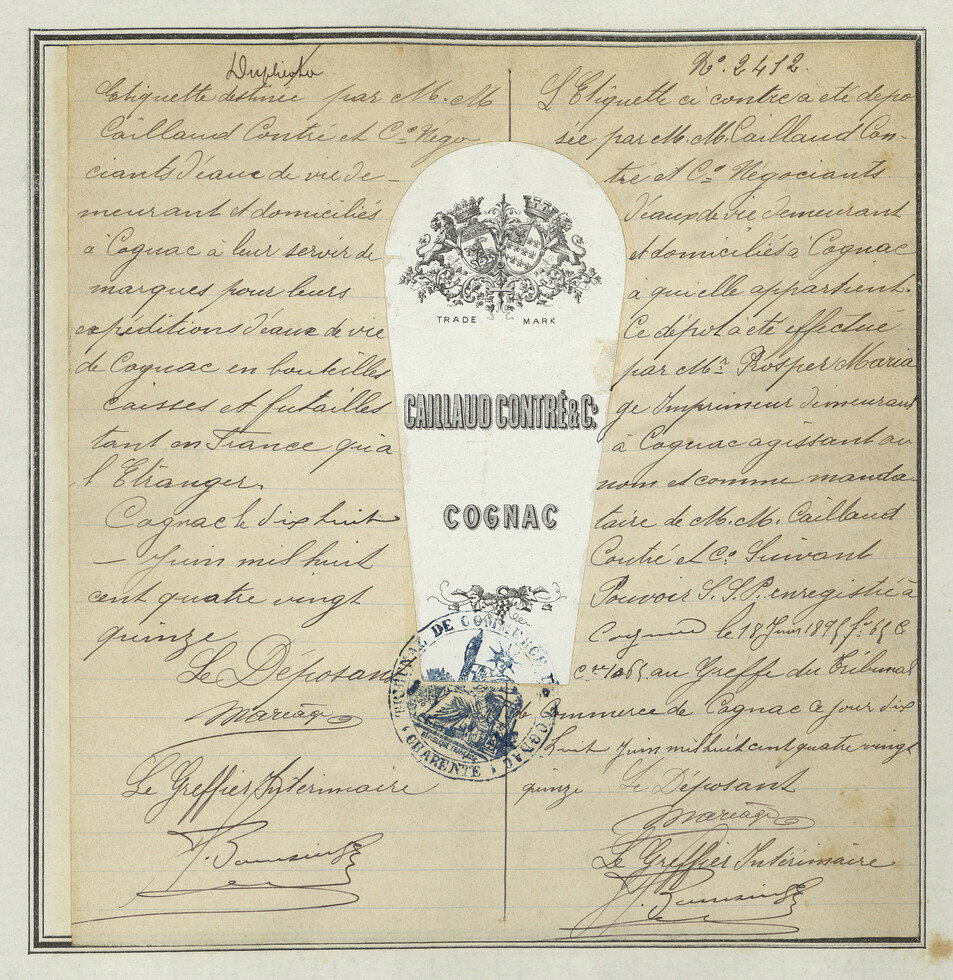 Duplicata
Etiquette destinée par M. M
Caillaud Contré et Cº Négo
ciants d'eaux de vie de-
meurant et domiciliés
à Cognac à leur servir de
marques pour leurs
expéditions d'eaux de vie
de Cognac en bouteilles
caisses et futailles
tant en France qu'à
l'Etranger.
Cognac le dix huit
Juin mil huit
cent quatre vingt
quinze
Le Déposant
Mariage
Le Greffier Intérimaire
TRADE MARK
CAILLAUD CONTRÉ & Cº
COGNAC
TRIBUNAL DE COMMERCE DE COGNAC
CHARENTE
REPUBLIQUE FRANÇAISE
Nº 2412.
L'Etiquette ci contre a été dépo
sée par M. M. Caillaud Con-
tré et Cº Négociants
d'eaux de vie demeurant
et domiciliés à Cognac
a qui elle appartient.
Ce dépôt a été effectué
par Mr. Prosper Maria
ge Imprimeur demeurant
à Cognac agissant au
nom et comme manda-
taire de M. M. Caillaud
Contré et Cº Suivant
Pouvoir S.S.P. enregistré à
Cognac le 18 Juin 1895 fº 65 C.
au Greffe du Tribunal
de Commerce de Cognac ce jour dix
huit Juin mil huit cent quatre vingt
quinze Le Déposant
Mariage
Le Greffier Intérimaire